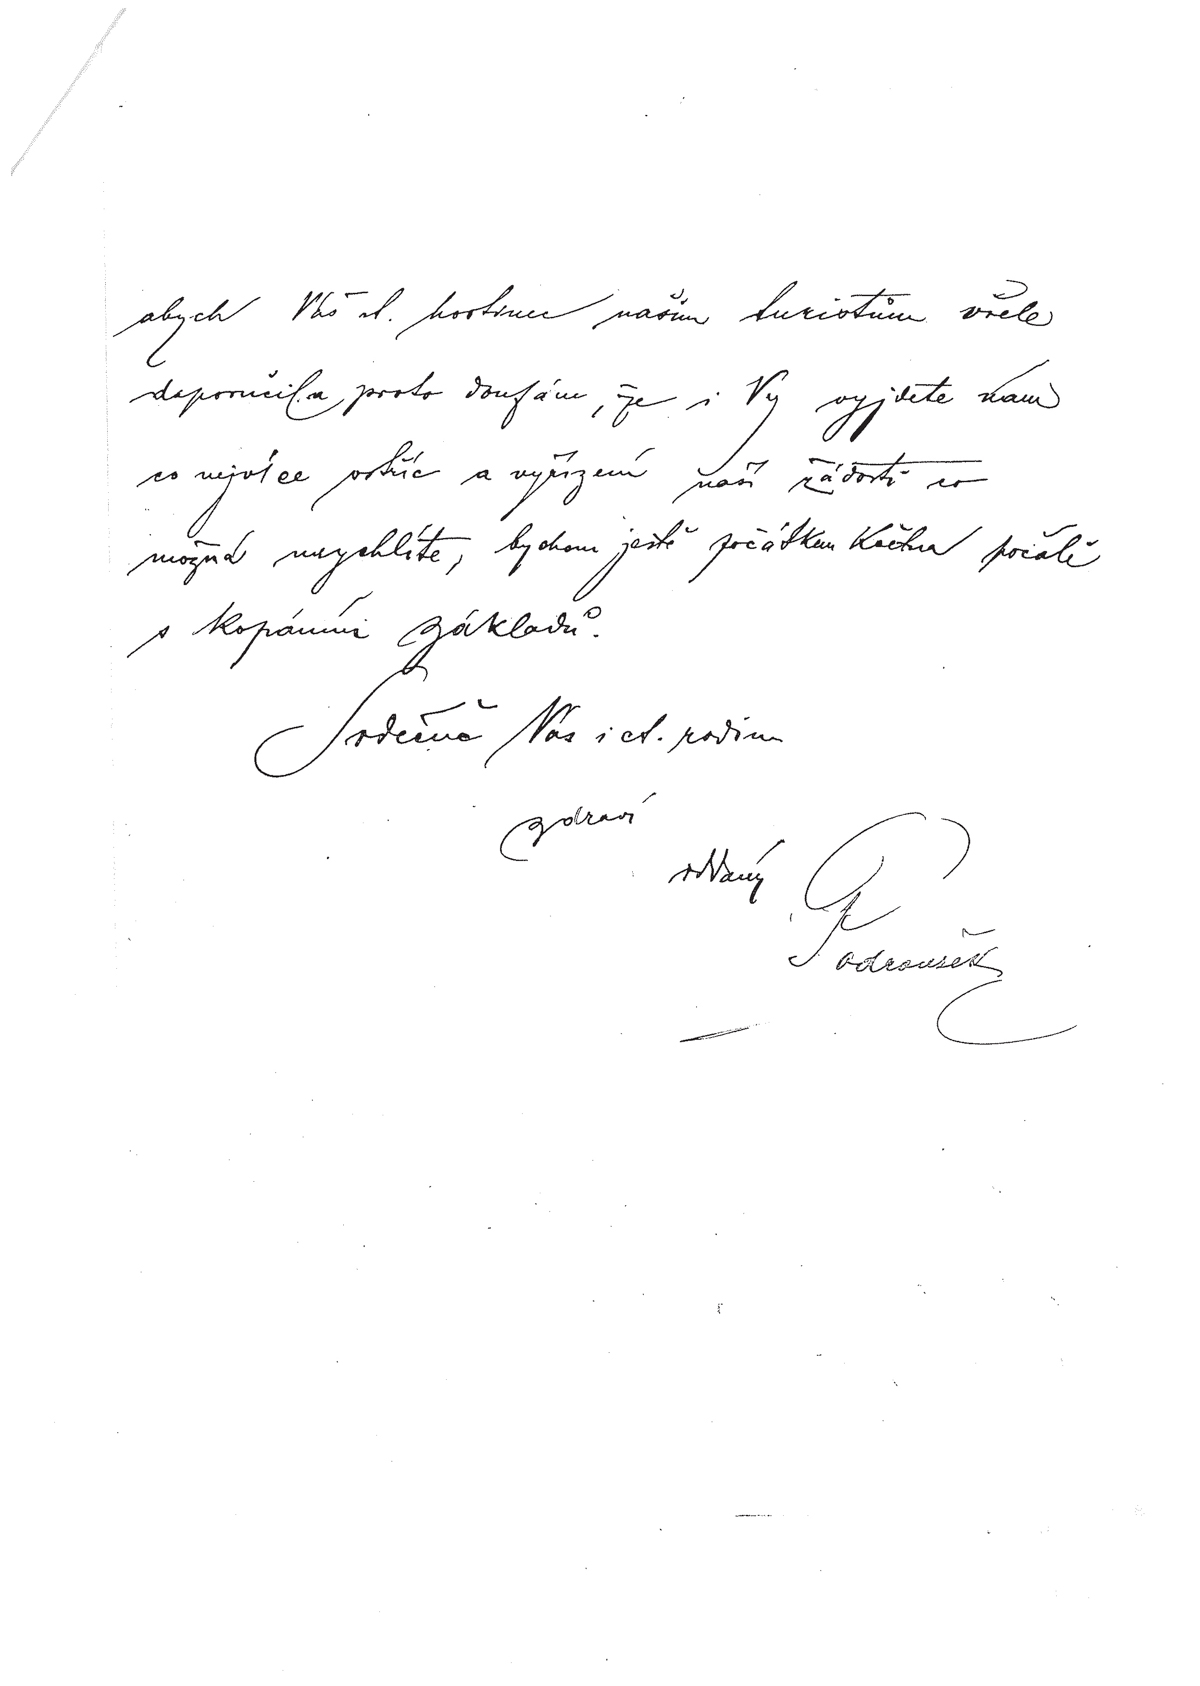 abych Váš ct. hostinec našim turistům vřele
doporučil a proto doufám, že i Vy vyjdete nám
co nejvíce vstříc a vyřízení naší žádosti co
možná urychlíte, bychom ještě počátkem Května počali
s kopáním základů.
Srdečně Vás i ct. rodinu
zdraví
oddaný
Podroužek